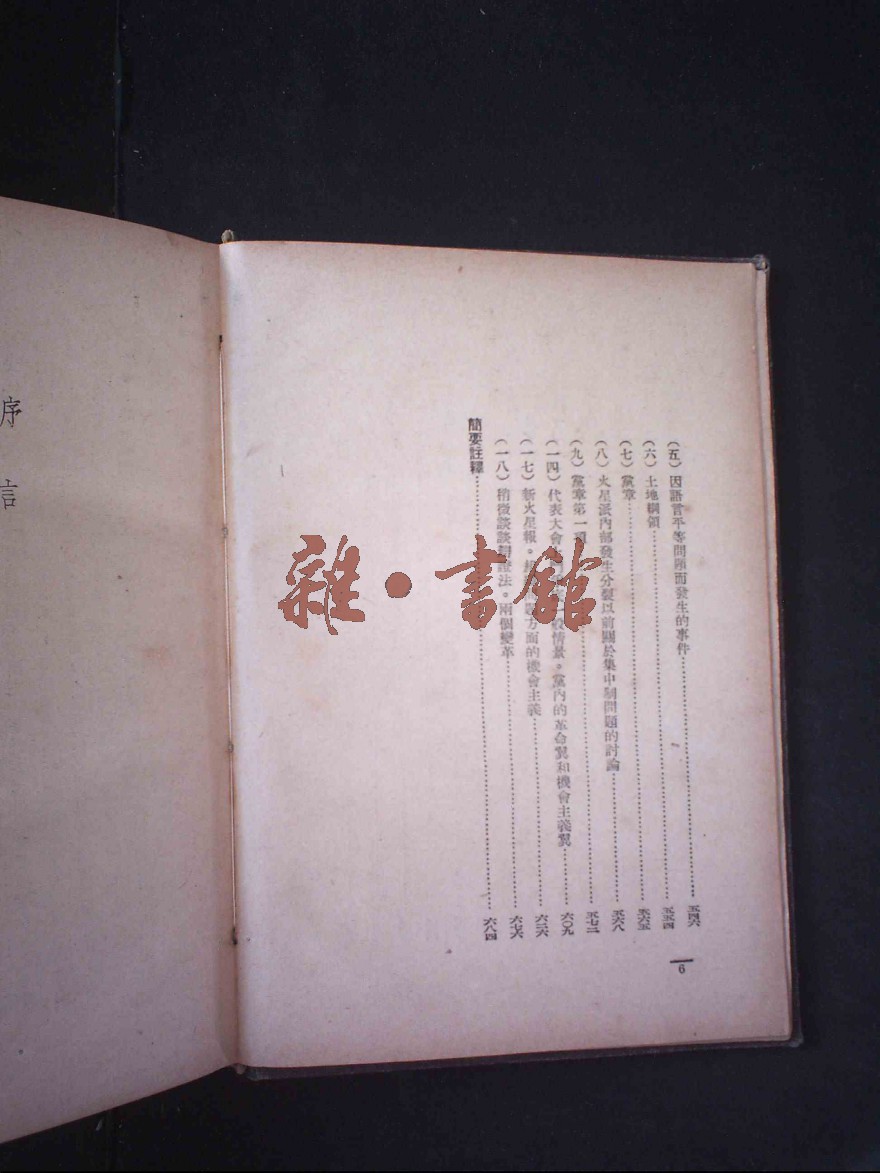 (五) 因語言平等問題而發生的事件……五四六
(六) 土地綱領……五五四
(七) 黨章……五六五
(八) 火星派內部發生分裂以前關於集中制問題的討論……五六八
(九) 黨章第一項……五七二
(一四) 代表大會 一般情景。黨內的革命翼和機會主義翼……六〇九
(一七) 新火星報。 方面的機會主義……六二六
(一八) 稍微談談辯證法。兩個變革……六七六
簡要註釋……六八四
6
序言
雜·書館